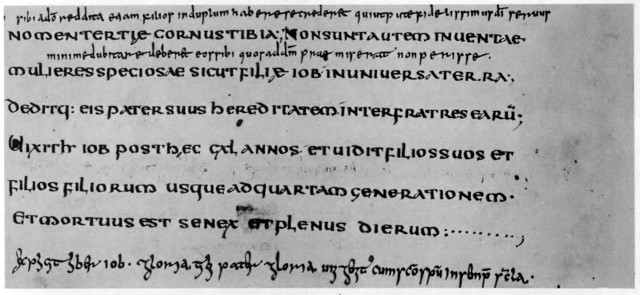 sibi a dño reddita etiam filios in duplum habere se crederet qui utpote fidelissimus dī servus
NOMEN TERTIĘ CORNUSTIBIA, NON SUNT AUTEM INUENTAE
minime dubitare deberet eos sibi quos ad dm̄ praemiserat non perisse,
MULIERES SPECIOSAE SICUT FILIĘ IOB IN UNIVERSA TERRA,
DEDITQ: EIS PATER SUUS HEREDITATEM INTER FRATRES EARŪ;
UIXIT IOB POST HĘC CXL ANNOS ET UIDIT FILIOS SUOS ET
FILIOS FILIORUM USQUE AD QUARTAM GENERATIONEM.
ET MORTUUS EST SENEX ET PLENUS DIERUM:........,
iob. gloria patri gloria cum